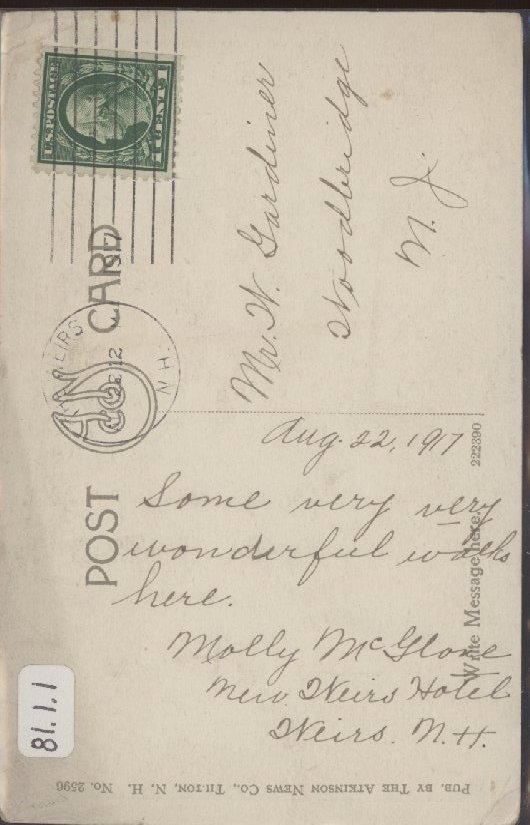 U.S. POSTAGE
1 CENT 1
POST CARD
WEIRS
N.H.
12
Mr. W. Gardiner
Woodbridge
N. J.
222390
Write Message here.
Aug. 22, 1917
Some very very
wonderful walks
here.
Molly McGlone
New Weirs Hotel
Weirs. N.H.
PUB. BY THE ATKINSON NEWS CO., TILTON, N. H. No. 2596
81.1.1